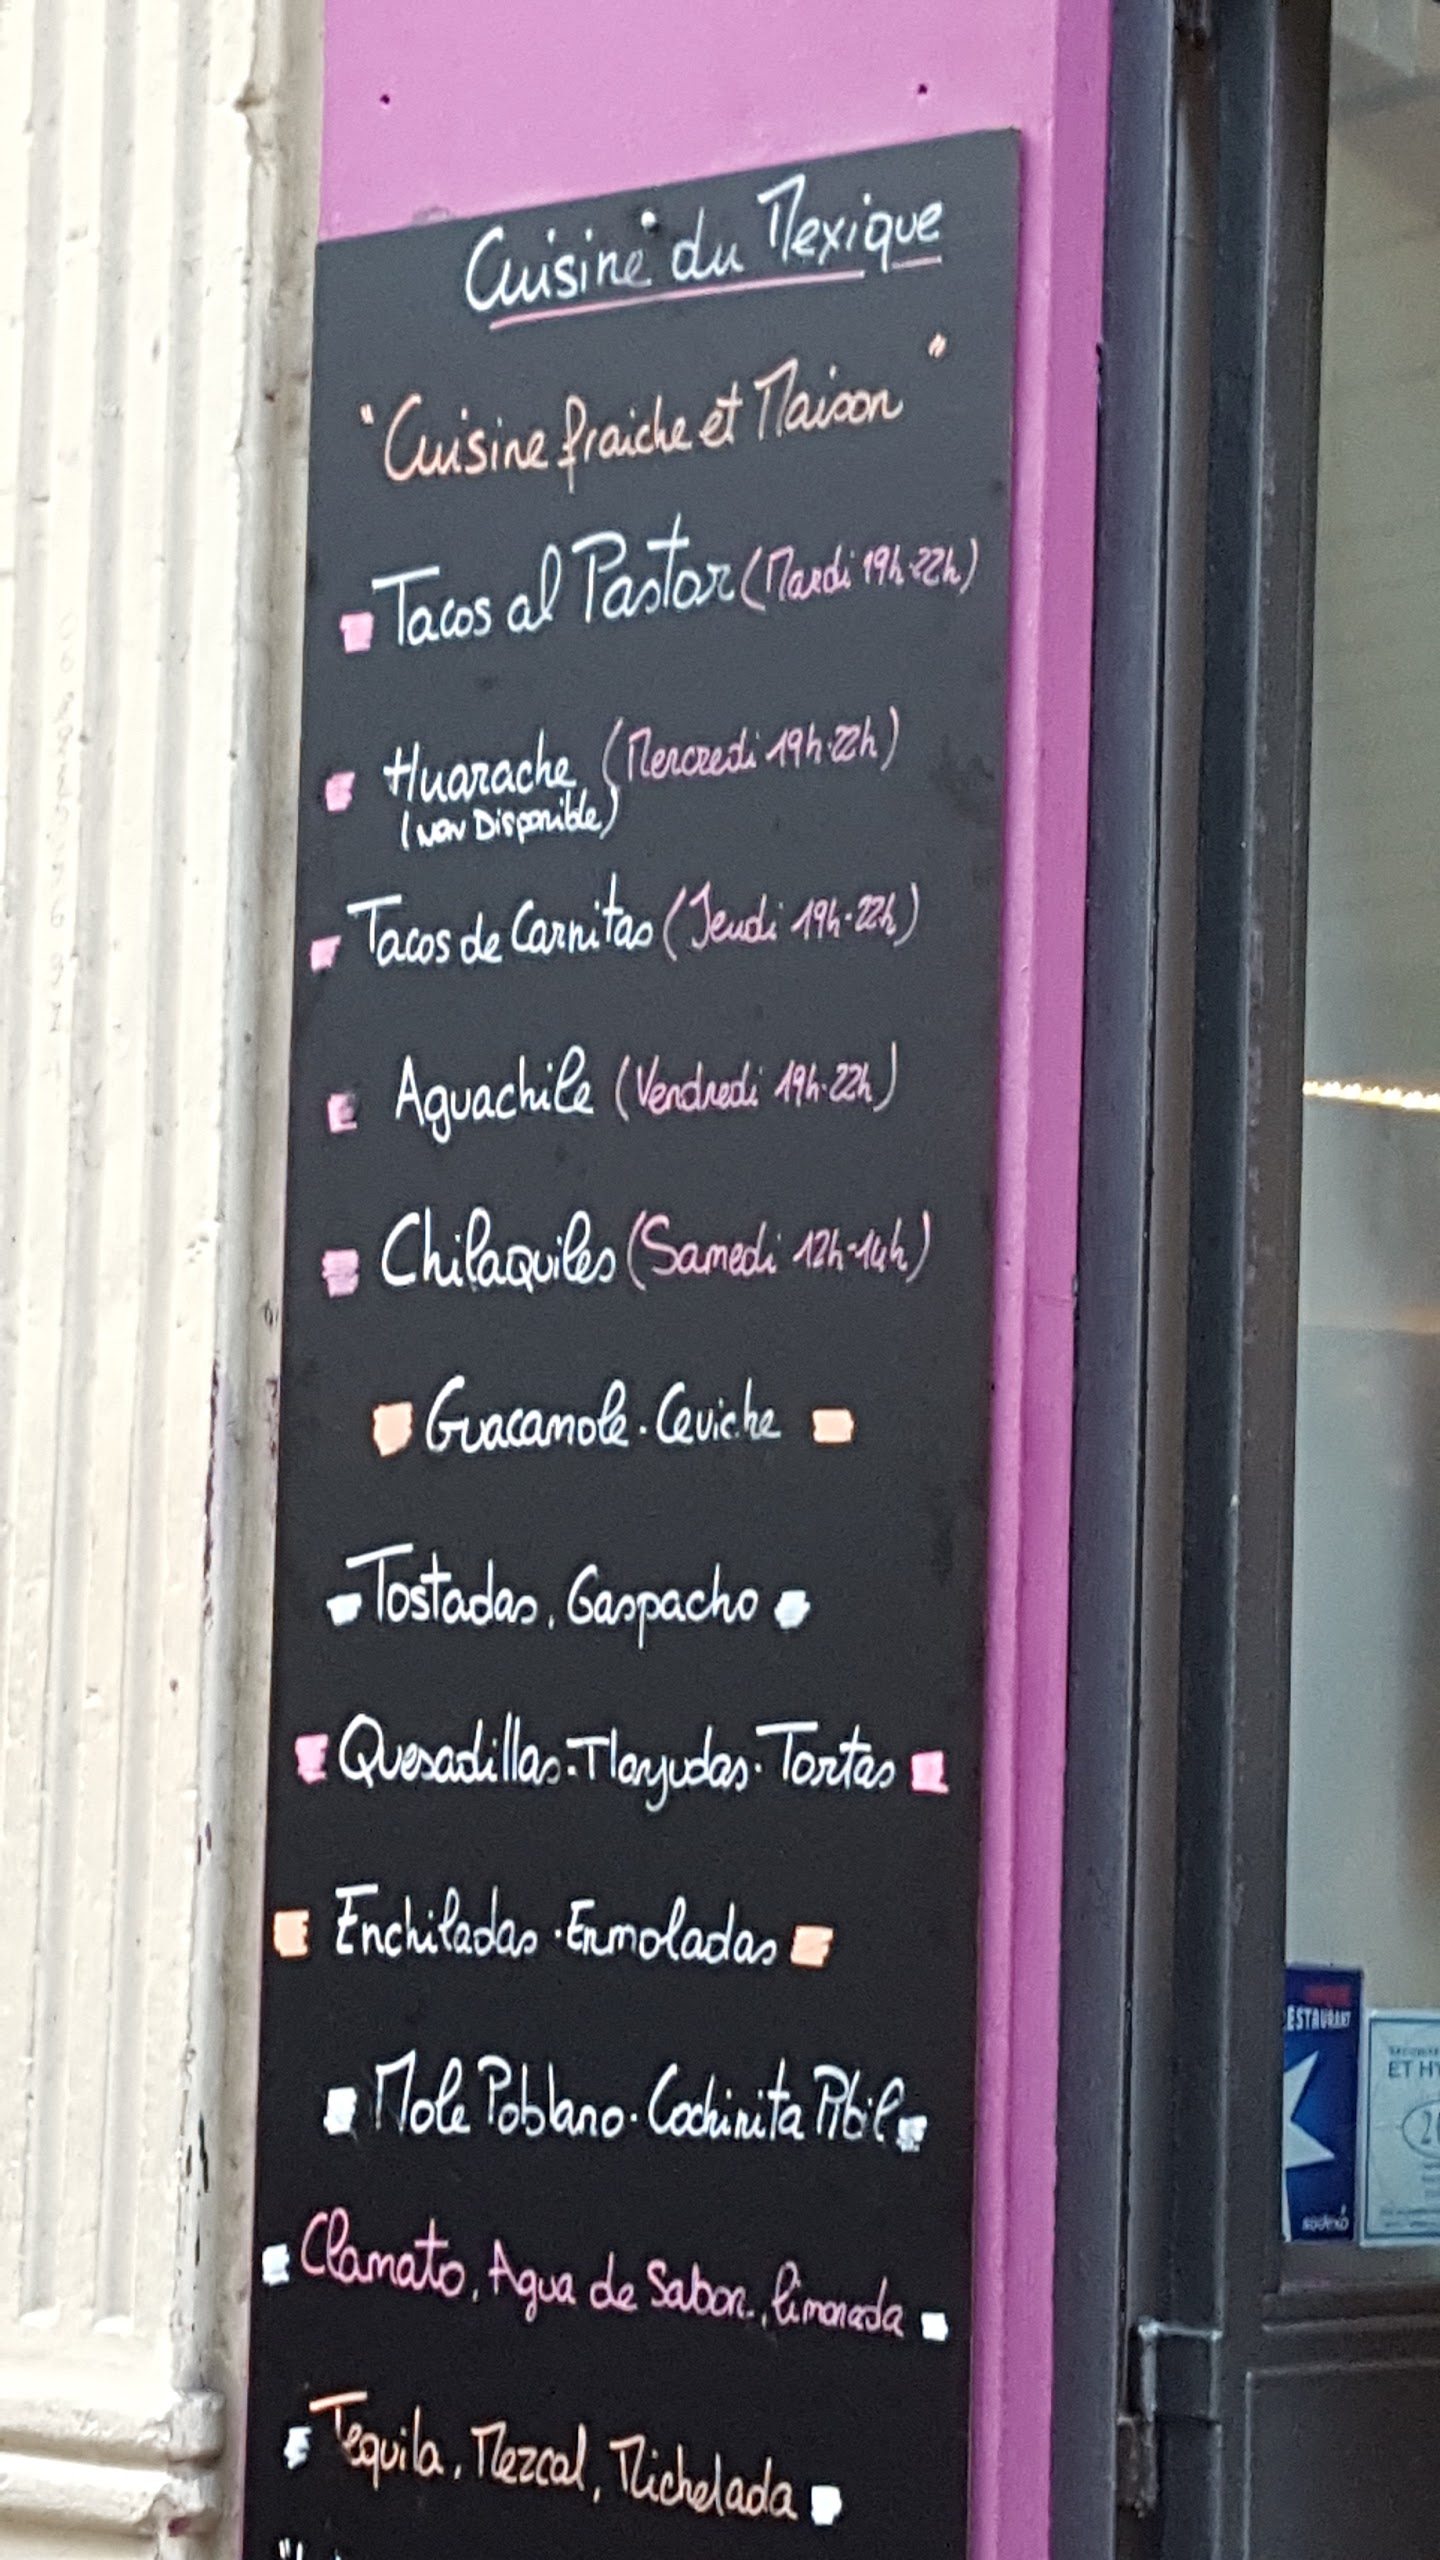 Cuisine du Mexique
"Cuisine fraiche et Maison"
Tacos al Pastor (Mardi 19h-22h)
Huarache (Mercredi 19h-22h)
(Non Disponible)
Tacos de Carnitas (Jeudi 19h-22h)
Aguachile (Vendredi 19h-22h)
Chilaquiles (Samedi 12h-14h)
Guacamole . Ceviche
Tostadas, Gaspacho
Quesadillas . Tlayudas . Tortas
Enchiladas . Enmoladas
Mole Poblano . Cochinita Pibil
Clamato, Agua de Sabor, limonada
Tequila, Mezcal, Michelada
ESTAURANT
sodexo
ET HY